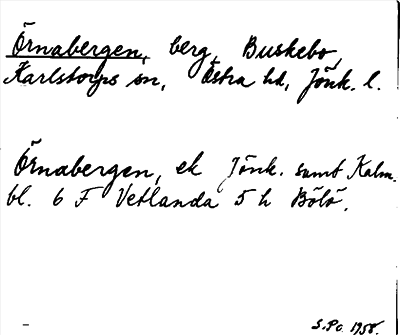 Örnabergen, berg, Buskebo,
Karlstorps sn, Östra hd, Jönk. l.
Örnabergen, ek Jönk. samt Kalm.
bl. 6 F Vetlanda 5 h Bölö.
S.Po. 1958.